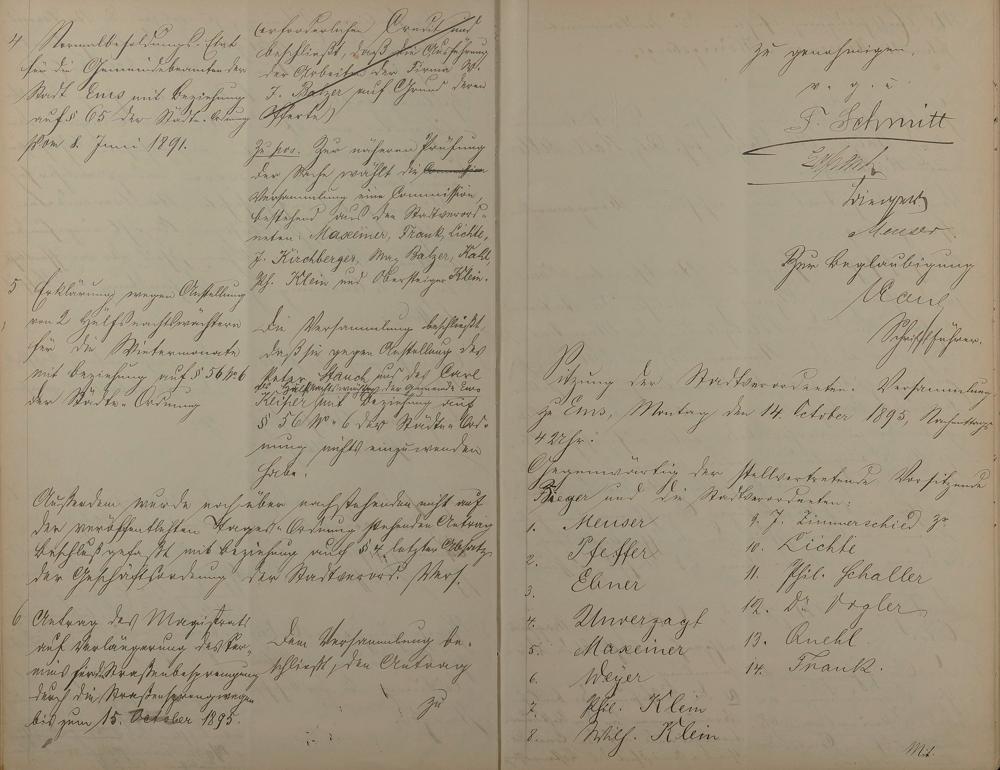 4 Normalbesoldungs-Etat
für die Gemeindebeamten der
Stadt Ems mit Beziehung
auf § 65 der Städte-Ordnung
vom 8. Juni 1891.
erforderlichen Credit und
beschließt, daß die Ausführung
der Arbeiten der Firma W.
J. Balzer auf Grund deren
Offerte
zu pos. Zur näheren Prüfung
der Sache wählt die Commission
Versammlung eine Commission,
bestehend aus den Stadtverord-
neten: Maxeiner, Frank, Lichte,
J. Kirchberger, Max Balzer, Kahl
Ph. Klein und Obersteiger Klein.
5 Erklärung wegen Anstellung
von 2 Hülfsnachtwächtern
für die Wintermonate
mit Beziehung auf § 56 No 6
der Städte-Ordnung
Die Versammlung beschließt,
daß sie gegen Anstellung des
Peter Stauch und des Carl
als Hülfsnachtwächter der Gemeinde Ems
mit Beziehung auf
§ 56 No 6 der Städte-Ord-
nung nichts einzuwenden
habe.
Außerdem wurde noch über nachstehenden nicht auf
der veröffentlichten Tages-Ordnung stehenden Antrag
Beschluß gefaßt mit Beziehung auf § 4 letzter Absatz
der Geschäftsordnung der Stadtverord. Vers.
6 Antrag des Magistrats
auf Verlängerung des Ter-
mins für die Straßenbesprengung
durch die Straßensprengwagen
bis zum 15. October 1895.
Die Versammlung be-
schließt, den Antrag
zu
zu genehmigen
v. g. u
F. Schmitt
Meuser
Zur Beglaubigung
Schriftführer.
Sitzung der Stadtverordneten-Versammlung
zu Ems, Montag, den 14. October 1895, Nachmittags
4 Uhr:
Gegenwärtig der stellvertretende Vorsitzende
Rieger und die Stadtverordneten:
1. Meuser
2. Pfeffer
3. Ebner
4. Unverzagt
5. Maxeiner
6. Weyer
7. Phil. Klein
8. Wilh. Klein
9. J. Zimmerschied Jr
10. Lichte
11. Phil. Schaller
12. Dr Vogler
13. Quehl
14. Frank.